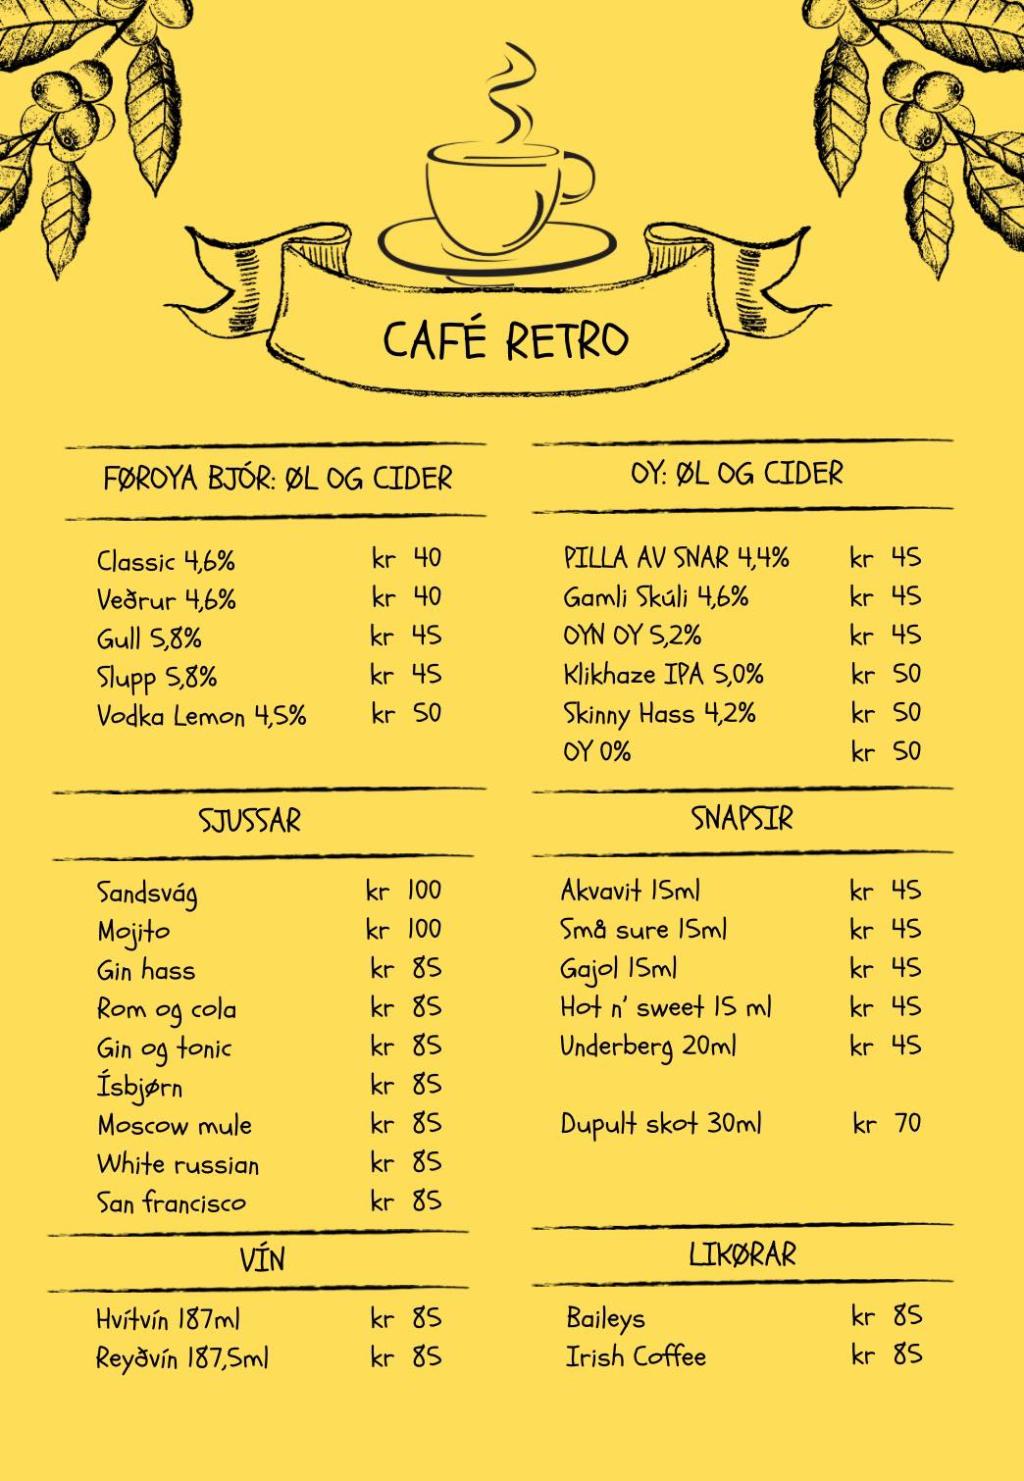 CAFÉ RETRO
FØROYA BJÓR: ØL OG CIDER
Classic 4,6% kr 40
Veðrur 4,6% kr 40
Gull 5,8% kr 45
Slupp 5,8% kr 45
Vodka Lemon 4,5% kr 50
OY: ØL OG CIDER
PILLA AV SNAR 4,4% kr 45
Gamli Skúli 4,6% kr 45
OYN OY 5,2% kr 45
Klikhaze IPA 5,0% kr 50
Skinny Hass 4,2% kr 50
OY 0% kr 50
SJUSSAR
Sandsvág kr 100
Mojito kr 100
Gin hass kr 85
Rom og cola kr 85
Gin og tonic kr 85
Ísbjørn kr 85
Moscow mule kr 85
White russian kr 85
San francisco kr 85
SNAPSIR
Akvavit 15ml kr 45
Små sure 15ml kr 45
Gajol 15ml kr 45
Hot n' sweet 15 ml kr 45
Underberg 20ml kr 45
Dupult skot 30ml kr 70
VÍN
Hvítvín 187ml kr 85
Reyðvín 187,5ml kr 85
LIKØRAR
Baileys kr 85
Irish Coffee kr 85